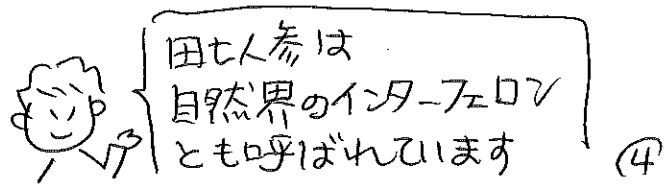 田七人参は
自然界のインターフェロン
とも呼ばれています
④